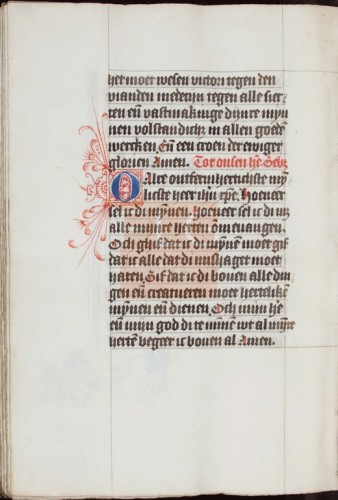 het moet wesen victori tegen den
vianden medecijn tegen alle siec
ten en̄ vastmakinge dijnre myn
nen volstandich in allen goedē
wercken En̄ een croen der ewiger
glorien Amen. Tot onsen hē
O Alre ontfermhertichste myn
here ihū xpē. Hoeneer
sel ic di mynen. Hoeneer sel ic di uut
alle mijnre herten omvangen.
Och ghif dat ic di mynē moet gif
dat ic alle dat di mishaget moet
haten. Gif dat ic di boven alle din
gen en̄ creatueren moet hertelikē
mynnen en̄ dienen. Och mijn he
en̄ mijn god di te mīnē wt al mijnre
hertē begeer ic boven al Amen.